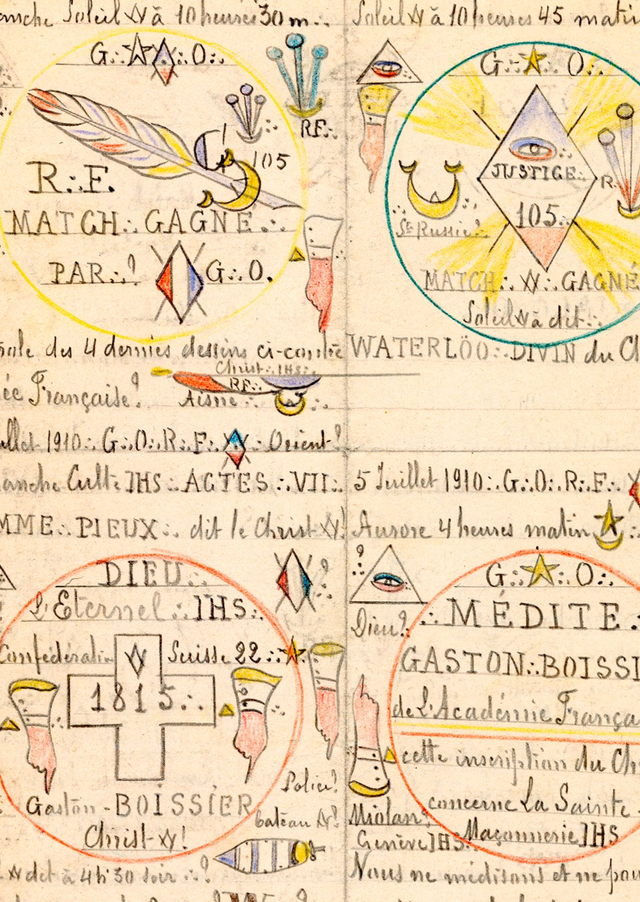 anche Soleil à 10 heures 30 m
G∴ O∴
RF∴
105
R∴F∴
MATCH∴ GAGNÉ∴
PAR∴? G∴O.
des 4 derniers dessins ci-contre
Christ∴IHS∴
RF∴
ée Française? Aisne
1910∴ G∴O∴R∴F∴ Orient?
anche Culte IHS∴ ACTES∴VII∴
MME∴ PIEUX∴ dit le Christ !
DIEU∴ ?
L'Éternel∴ IHS∴
Confédération Suisse 22∴
1815∴
Police?
Gaston-BOISSIER
bateau ?
Christ !
dit à 4h30 soir∴?
Soleil à 10 heures 45 matin
G∴ O∴
JUSTICE∴
R
105∴
St Russie?
MATCH∴ GAGNÉ
Soleil à dit∴
WATERLÖO∴ DIVIN du Ch
5 Juillet 1910∴ G∴O∴R∴F∴
Aurore 4 heures matin
?
G∴ O∴
Dieu?
MÉDITE∴
GASTON∴BOISSI
de L'Académie França
cette inscription du Ch
concerne La Sainte
Miolan?
Genève IHS∴ Maçonnerie IHS
Nous ne médisons et ne pou